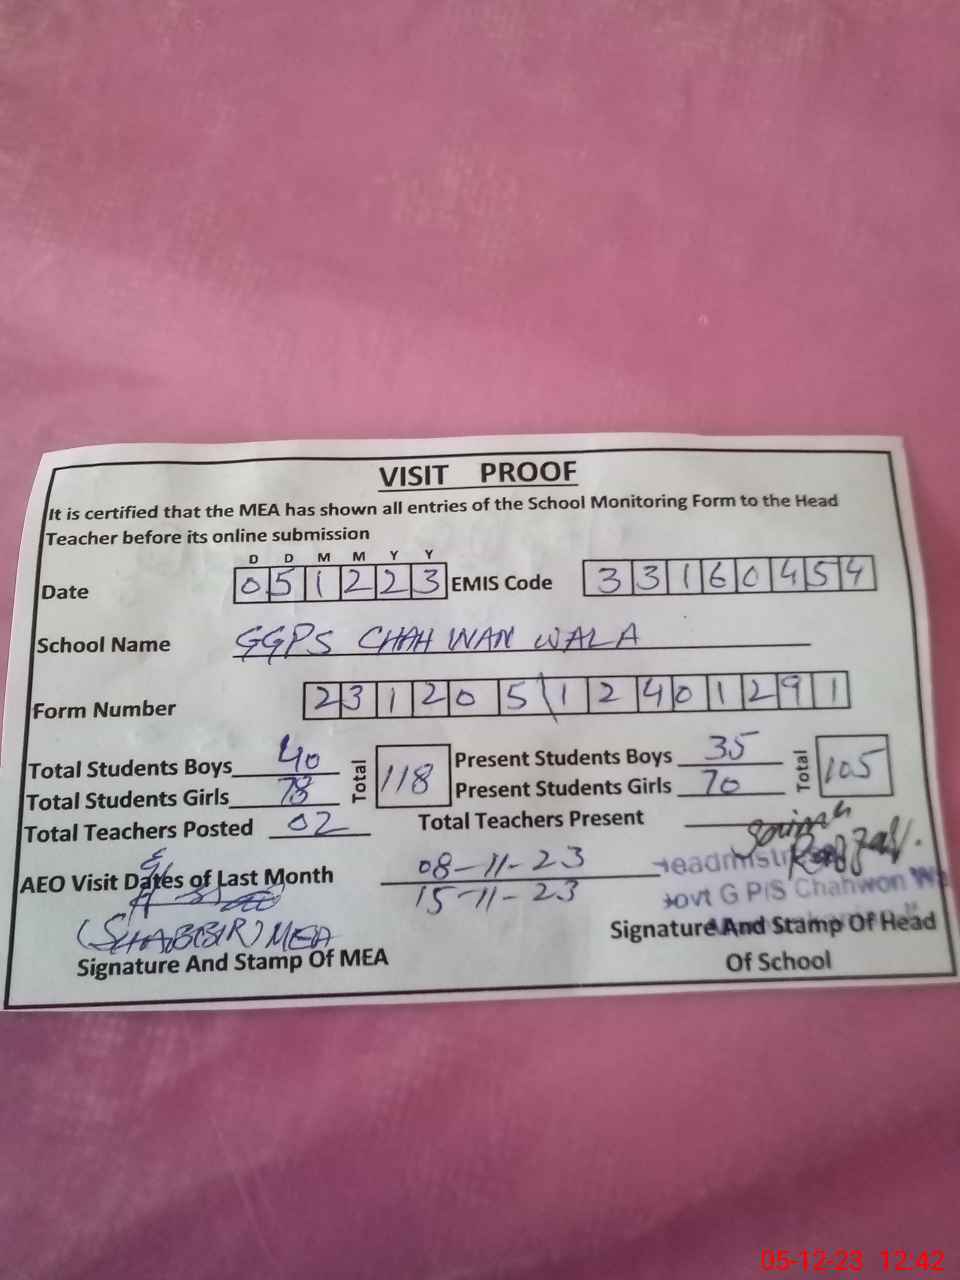 VISIT PROOF
It is certified that the MEA has shown all entries of the School Monitoring Form to the Head
Teacher before its online submission
D D M M Y Y
Date 051223 EMIS Code 33160454
School Name GGPS CHAH WAN WALA
Form Number 231205\12401291
Total Students Boys 40 Total 118 Present Students Boys 35 Total 105
Total Students Girls 78 Present Students Girls 70
Total Teachers Posted 02 Total Teachers Present
AEO Visit Dates of Last Month 08-11-23
15-11-23
Govt G P/S Chahwon
(SHABBIR) MEA
Signature And Stamp Of MEA
Signature And Stamp Of Head
Of School
05-12-23 12:42